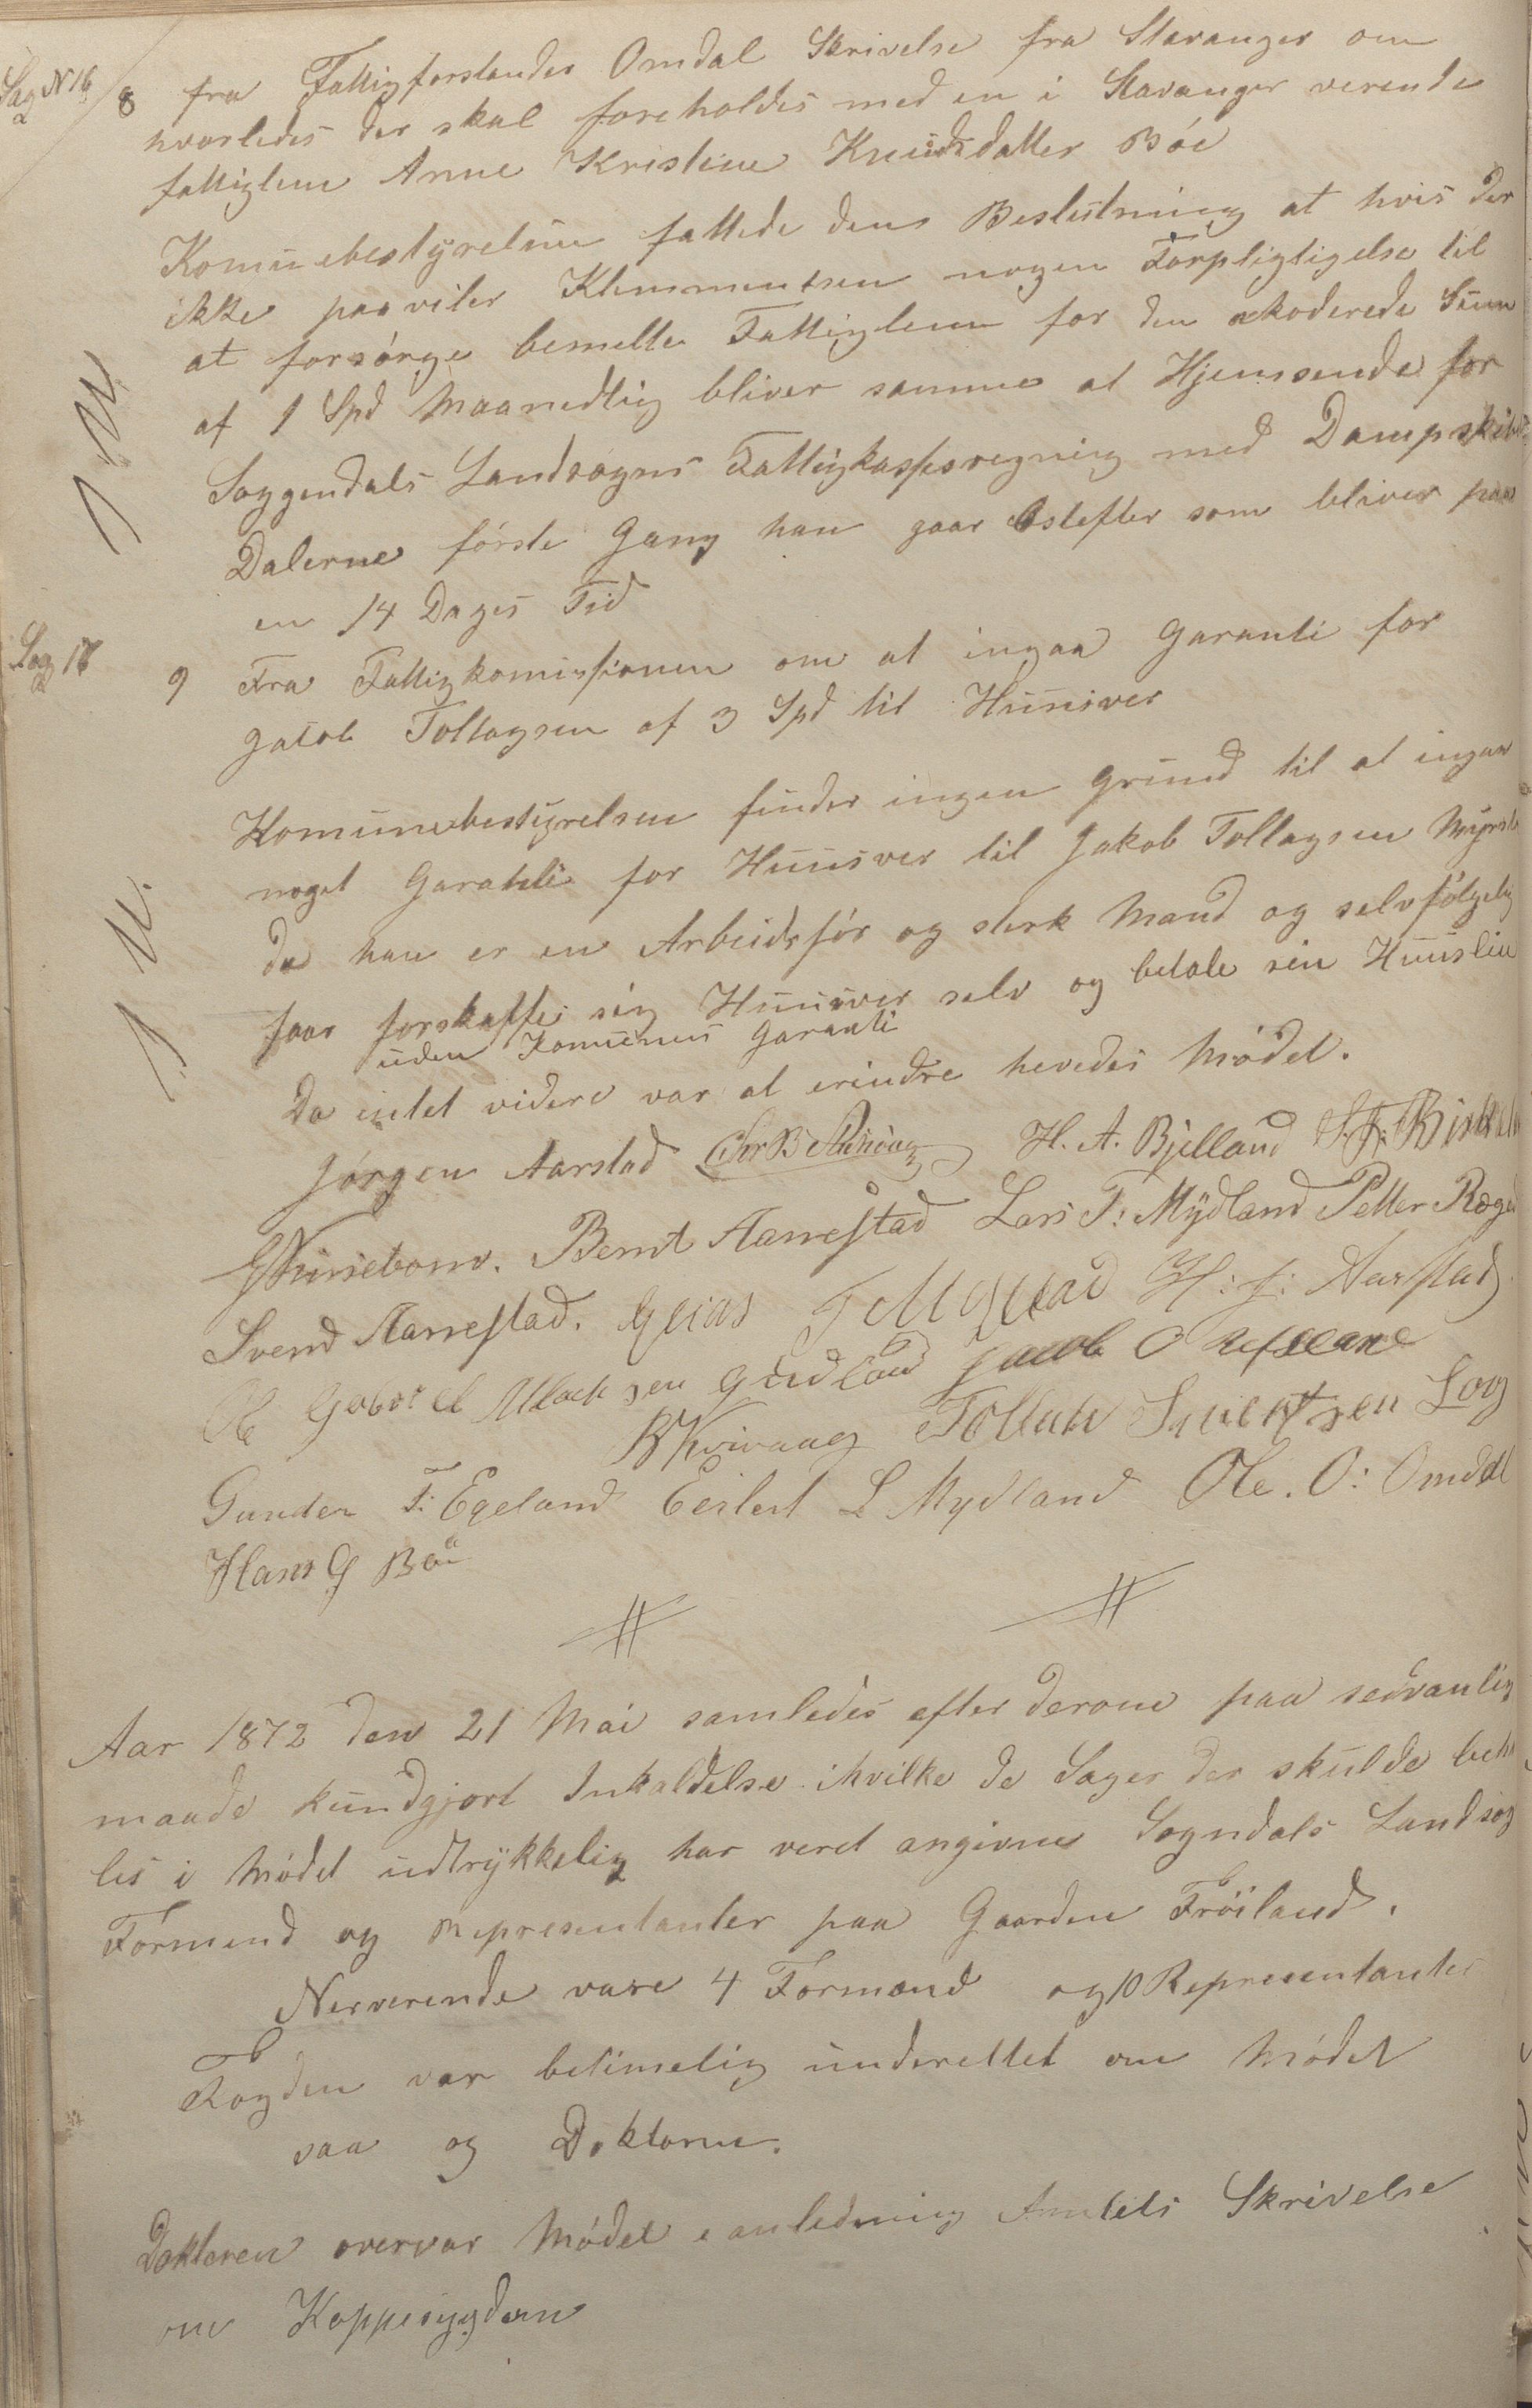 Sag N 16
8 fra Fattigforstander Omdal Skrivelse fra Stavanger om
hvorledes der skal foreholdes med en i Stavanger verende
fattiglem Anne Kristine Knudsdatter Bóe
Komunebestyrelsen fattede dens Beslutning at hvis der
ikke paaviler Klemmentsen nogen Forpligtigelse til
at forsórge bemelte Fattiglem for den akoderede Sum
af 1 Spd Maanedlig bliver samme at Hjemsende for
Soggendals Landsogns Fattigkasses regning med Dampskibet
Dalerne fórste Gang han gaar Ostefter som bliver paa
en 14 Dages Tid
Sag 17
9 Fra Fattigkomissionen om at ingaa Garanti for
Jakob Tollagsen af 3 Spd til Huusver
Komunebestyrelsen finder ingen grund til at ingaa
noget Garanti for Huusver til Jakob Tollagsen
da han er en Arbeidsfór og sterk Mand og selvfólgelig
faar forskaffe sig Huusver selv og betale sin Huusleie
uden Komunens Garanti
Da intet videre var at erindre hevedes Módet.
Jórgen Aarstad H. A. Bjelland
Bernt Aarrestad Lars T: Mydland Petter Røgeli
Svend Aarrestad. Elias H: J: Aarstad
Ole Gabriel Gudland Jacob O Refsland
B Kvivaag Tollak Sivertsen Log
Gunder T: Egeland Eilert L Mydland Ole. O: Omdal
Hans G Böe
Aar 1872 den 21 Mai samledes efter derom paa sedvanlig
maade kundgjort Inkaldelse ihvilke de Sager der skulde beha
les i Módet udtrykkelig har veret angivne Sogndals Landsog
Formend og Representanter paa Gaarden Fróiland.
Nerverende vare 4 Formænd og 10 Representanter
Fogden var betimelig underettet om Módet
saa og Doktoren.
Doktoren overvar Módet i anledning Amtets Skrivelse
om Koppesygdom